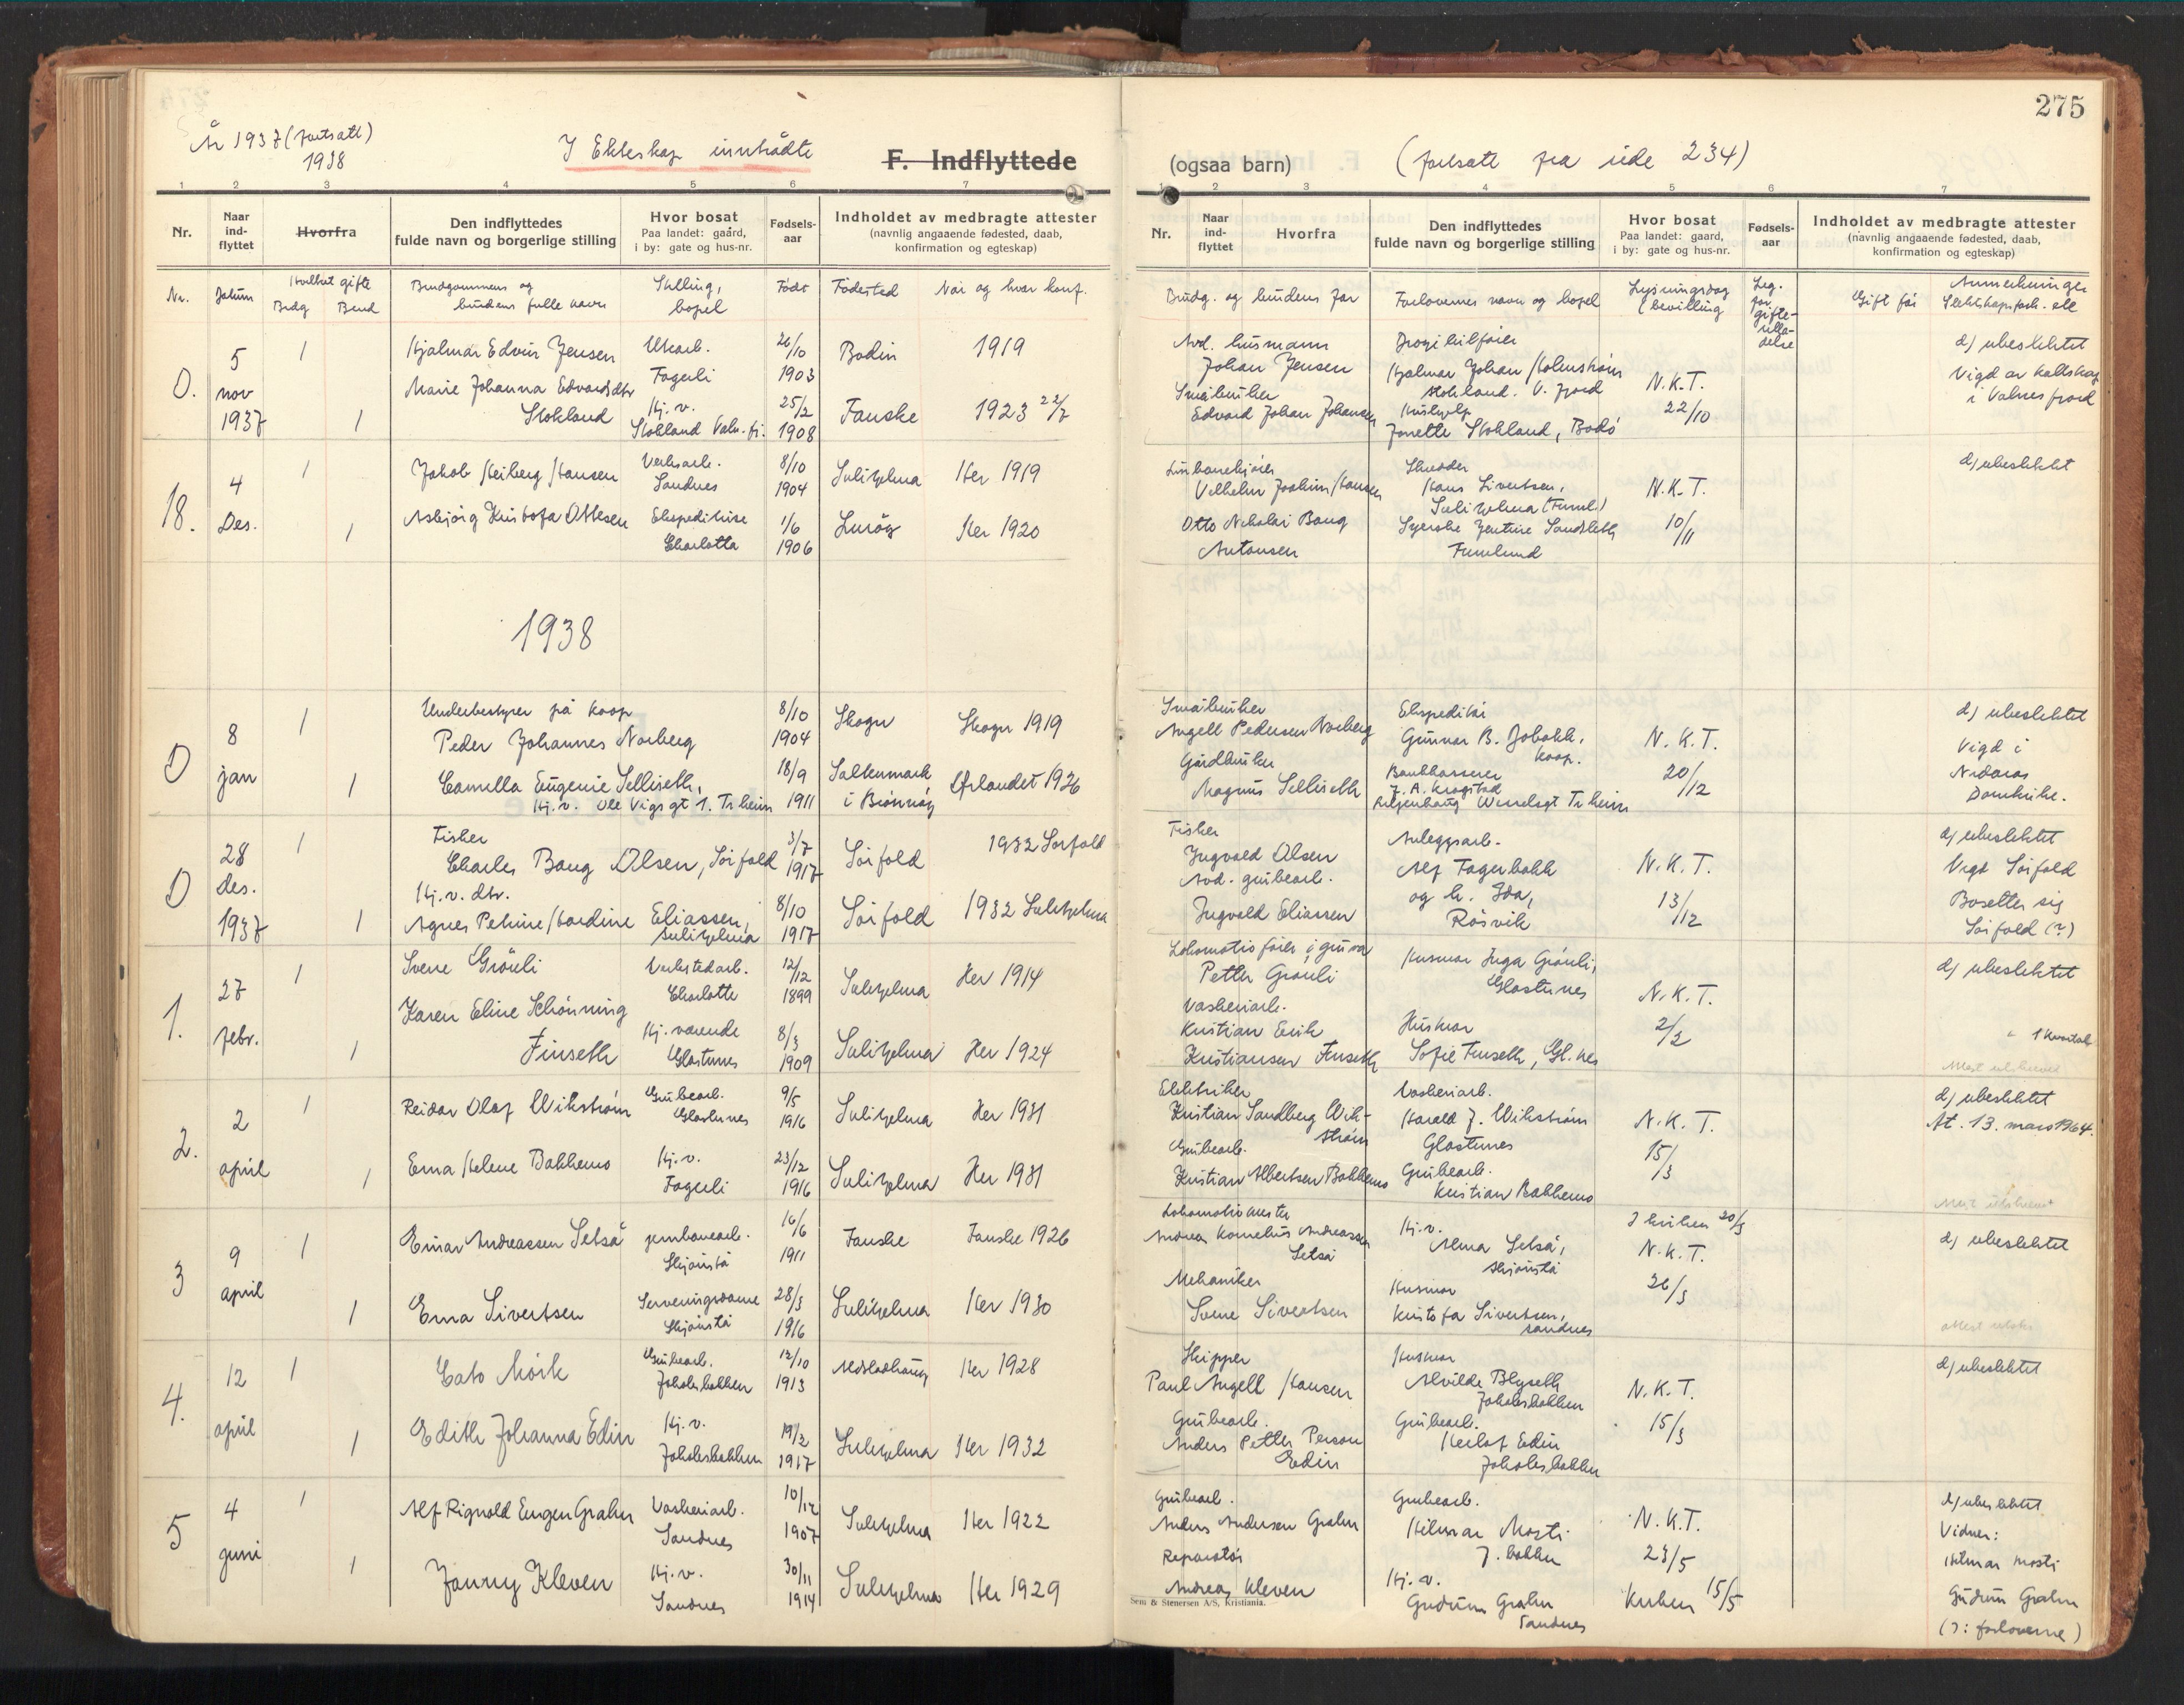 År 1937 (fortsatt)
1938
I Ekteskap inntrådte
F. Indflyttede
1 2 3 4 5 6 7
Nr.
Naar ind-flyttet
Hvorfra
Den indflyttedes
fulde navn og borgerlige stilling
Hvor bosat
Paa landet: gaard,
i by: gate og hus-nr.
Fødsels-aar
Indholdet av medbragte attester
(navnlig angaaende fødested, daab,
konfirmation og egteskap)
Nr. Datum
Brudg Brud
Brudgommens og
brudens fulle navn
Stilling,
bopel
Født
Fødested Når og hvor konf.
0.
5
nov
1937
1
Hjalmar Edvin Jensen
Fagerli
26/10
1903
Bodin 1919
Marie Johanna Edvardsdtr
Stokland
1
Hj. v.
Stokland Valn. fj.
25/2
1908
Fauske 1923 22/7
18.
4
Des.
1
Jakob Heiberg Hansen
Verksarb.
Sandnes
8/10
1904
Sulitjelma Her 1919
Asbjørg Kristofa Ottesen
1
Ekspeditrise
Charlotta
1/6
1906
Lurøy Her 1920
1938
0
8
jan
1
Underbestyrer på koop
Peder Johannes Norberg
8/10
1904
Skogn Skogn 1919
1
Camilla Eugenie Selliseth,
Hj. v. Ole Vigs gt 1. Tr.heim
18/9
1911
Salhusmark
i Brønnøy
Ørlandet 1926
0
28
des.
1937
1
Fisker
Charles Baug Olsen, Sørfold
3/7
1917
Sørfold 1932 Sørfold
1
Hj. v. dtr.
Agnes Petrine Hardine Eliassen,
Sulitjelma
8/10
1917
Sørfold 1932 Sulitjelma
1.
27
febr.
1
Sverre Grønli
Verkstedarb.
Charlotte
12/12
1899
Sulitjelma Her 1914
Karen Eline Schønning
Finseth
1
Hj. værende
Glastunes
8/3
1909
Sulitjelma Her 1924
2.
2
april
1
Reidar Olaf Wikstrøm
Grubearb.
Glastunes
9/5
1916
Sulitjelma Her 1931
1
Erna Helene Bakkemo
Hj. v.
Fagerli
23/12
1916
Sulitjelma Her 1931
3
9
april
1
Einar Andreassen Setså
jernbanearb.
Skjønstå
16/6
1911
Fauske Fauske 1926
1
Erna Sivertsen
Serveringsdame
Skjønstå
28/3
1916
Sulitjelma Her 1930
4.
12
april
1
Cato Mørk
Grubearb.
Jakobsbakken
12/10
1913
Her 1928
1
Edith Johanna Edin
Hj. v.
Jakobsbakken
19/2
1917
Sulitjelma Her 1932
5
4
juni
1
Alf Rignold Eugen Grahn
Vaskeriarb.
Sandnes
10/12
1907
Sulitjelma Her 1922
1
Jonny Kleven
Hj. v.
Sandnes
30/11
1914
Sulitjelma Her 1929
275
(ogsaa barn)
(fortsatt fra side 234)
1 2 3 4 5 6 7
Nr.
Naar ind-flyttet
Hvorfra
Den indflyttedes
fulde navn og borgerlige stilling
Hvor bosat
Paa landet: gaard,
i by: gate og hus-nr.
Fødsels-aar
Indholdet av medbragte attester
(navnlig angaaende fødested, daab,
konfirmation og egteskap)
Brudg. og brudens far
Forlovernes navn og bopel
Lysningsdag
(bevilling
Leg. for gifte-tilla-delse
Gift før
Anmerkninger
Slektskapsforh. etc
Avd. husmann
Johan Jensen
Småbruker
Edvard Johan Johansen
Drosjebilfører
Hjalmar Johan Holmstrøm
Stokland. V. fjord
Hushjelp
Jonette Stokland, Bodø
N.K.T.
22/10
d) ubeslektet
Vigd av
i Valnesfjord
Linbanekjører
Vilhelm Joakim Hansen
Otto Nikolai Baug
Antonsen
Skredder
Hans Sivertsen,
Sulitjelma (Furul.)
Syerske Jentine Sandsleth
Furulund
N.K.T.
10/11
d) ubeslektet
Småbruker
Angell Pedersen Norberg
Gårdbruker
Magnus Selliseth
Ekspeditør
Gunnar B. Jobakk.
koop.
Bankkasserer
J. A. Krogstad
Tr heim
N. K. T.
20/12
d) ubeslektet
Vigd i
Nidaros
Domkirke.
Fisker
Ingvald Olsen
Avd. grubearb.
Ingvald Eliassen
Anleggsarb.
Alf Fagerbakk
og h. Ida,
Røsvik
N.K.T.
13/12
d) ubeslektet
Vigd Sørfold
Bosetter sig
Sørfold (?)
Lokomotivfører i gruva
Petter Grønli
Vaskeriarb.
Kristian Erik
Kristiansen Finseth
Husmor Inga Grønli,
Glastunes
Husmor
Sofie Finseth, Gl. nes
N.K.T.
2/2
d) ubeslektet
1 kvartal
Elektriker
Kristian Sandberg Wik-
strøm
Grubearb.
Kristian Albertsen Bakkemo
Vaskeriarb.
Harald J. Wikstrøm
Glastunes
Grubearb.
Kristian Bakkemo
N.K.T.
15/3
d) ubeslektet
At. 13. mars 1964.
Lokomotivmester
Andreas Kornelius Andreassen
Setså
Mekaniker
Sverre Sivertsen
Hj. v.
Alma Setså,
Skjønstå
Husmor
Kristofa Sivertsen,
Sandnes
I kirken 20/3
N.K.T.
26/3
d) ubeslektet
Skipper
Paul Angell Hansen
Grubearb.
Anders Petter Person
Edin
Husmor
Alvilde Blyseth
Jakobsbakken
Grubearb.
Herlof Edin
Jakobsbakken
N.K.T.
15/3
d) ubeslektet
Grubearb.
Anders Andersen Grahn
Reparatør
Andreas Kleven
Grubearb.
Hilmar Mosti
J. bakken
Hj. v.
Gudrun Grahn
Sandnes
N.K.T.
23/5
Kirken 15/5
d) ubeslektet
Vidner:
Hilmar Mosti
Gudrun Grahn
(ɔ: forloverne)
Sem & Stenersen A/S, Kristiania.